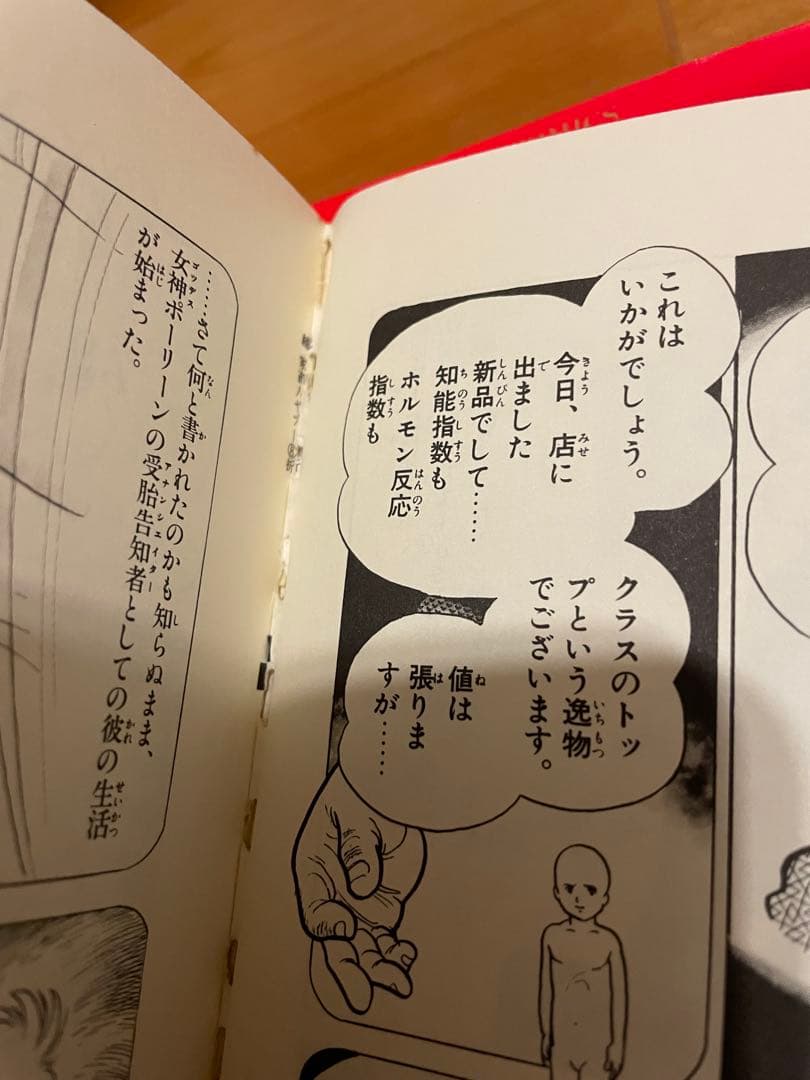 これは
いかがでしょう。
今日、店に
出ました
新品でして……
知能指数も
ホルモン反応
指数も
クラスのトッ
プという逸物
でございます。
値は
張りま
すが……
……さて何と書かれたのかも知らぬまま、
女神ポーリーンの受胎告知者としての彼の生活
が始まった。